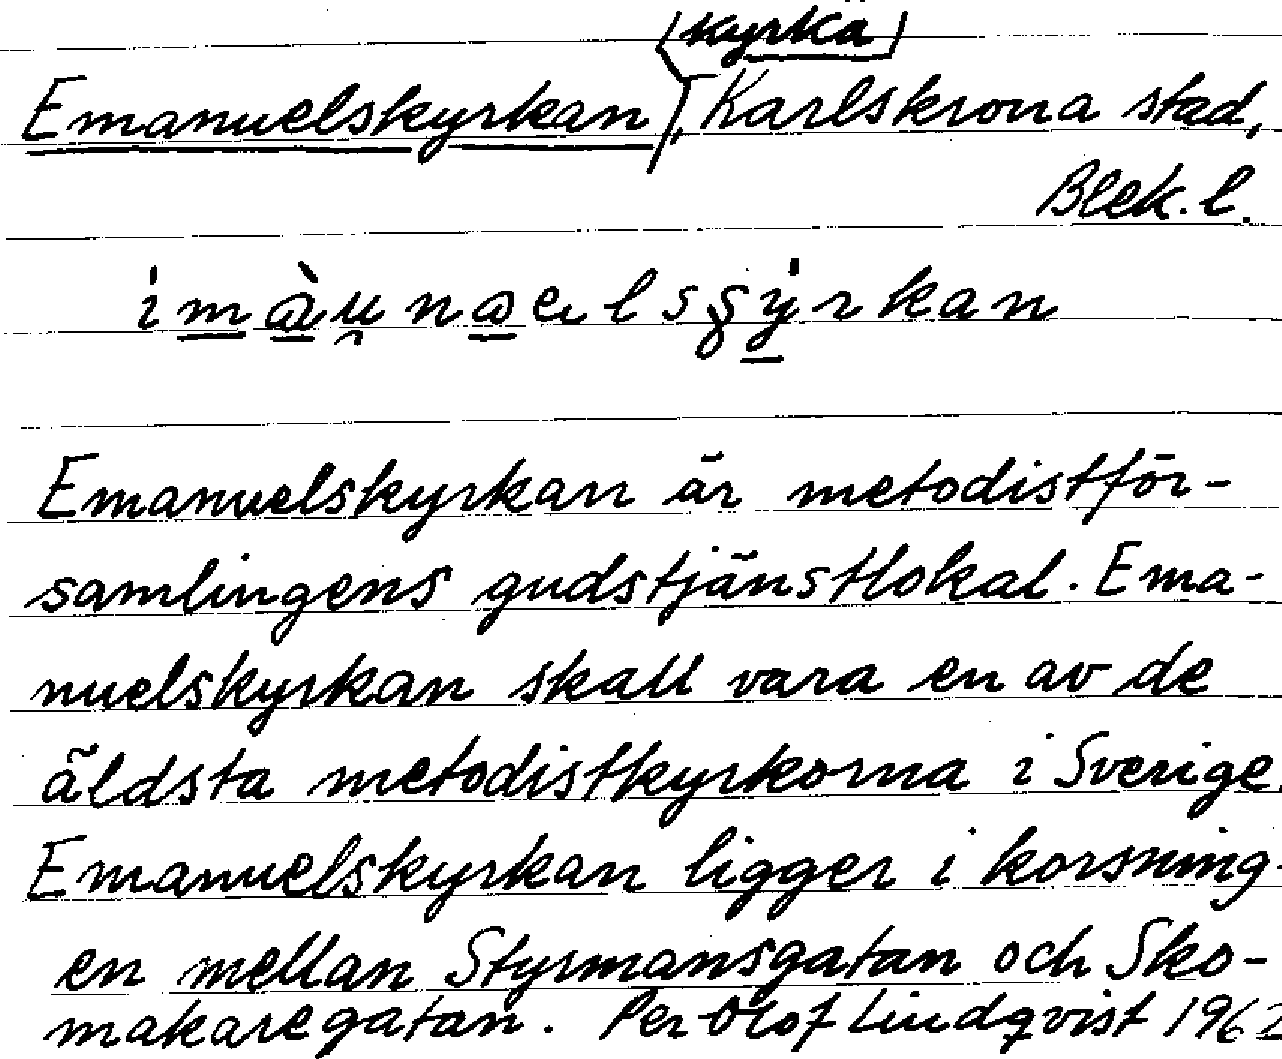 kyrka
Emanuelskyrkan, Karlskrona stad,
Blek. l.
Emanuelskyrkan är metodistför-
samlingens gudstjänstlokal. Ema-
nuelskyrkan skall vara en av de
äldsta metodistkyrkorna i Sverige.
Emanuelskyrkan ligger i korsning
en mellan Styrmansgatan och Sko-
makaregatan. Per-Olof Lindqvist 1962